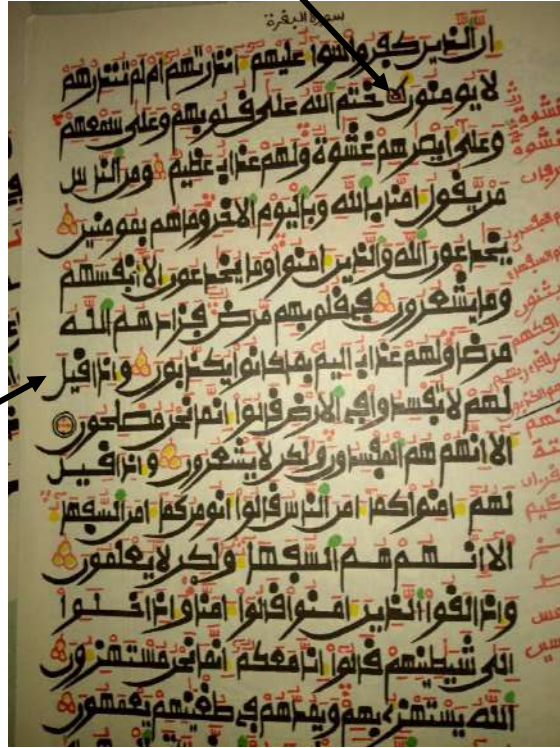 سورة البقرة
ان الذين كفروا سوا عليهم انذرتهم ام لم تنذرهم
لا يومنون ختم الله على قلوبهم وعلى سمعهم
وعلى ابصرهم غشوة ولهم عذاب عظيم ومن الناس
من يقول امنا بالله وباليوم الاخر وما هم بمومنين
يخدعون الله والذين امنوا وما يخدعون الا انفسهم
وما يشعرون في قلوبهم مرض فزادهم الله
مرضا ولهم عذاب اليم بما كانوا يكذبون واذا قيل
لهم لا تفسدوا في الارض قالوا انما نحن مصلحون
الا انهم هم المفسدون ولكن لا يشعرون واذا قيل
لهم امنوا كما امن الناس قالوا انومن كما امن السفها
الا انهم هم السفها ولكن لا يعلمون
واذا لقوا الذين امنوا قالوا امنا واذا خلوا
الى شيطينهم قالوا انا معكم انما نحن مستهزون
الله يستهزئ بهم ويمدهم في طغينهم يعمهون